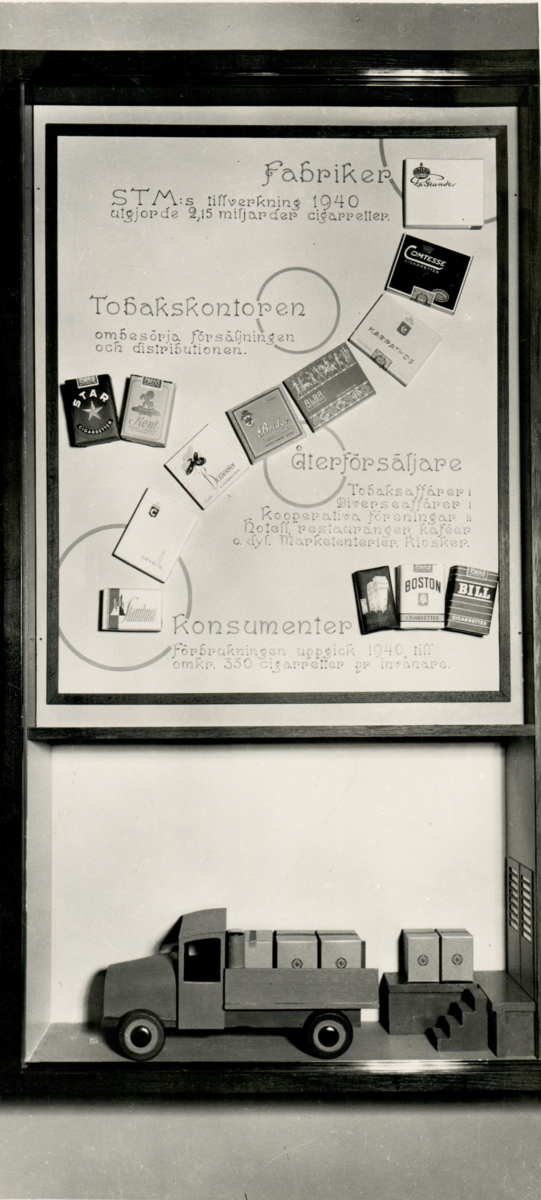 Fabriker
STM:s tillverkning 1940
utgjorde 2,15 miljarder cigarretter.
La Grande
COMTESSE
CIGARRETTER
Tobakskontoren
ombesörja försäljningen
och distributionen.
KARPATHOS
ALBA
STAR
CIGARRETTER
Kent
Bridge
Återförsäljare
Tobaksaffärer:
Diverseaffärer:
Kooperativa föreningar:
Hotell, restauranger, kaféer
o. dyl. Marketenterier. Kiosker.
BOSTON
CIGARRETTER
BILL
CIGARRETTER
Konsumenter
Förbrukningen uppgick 1940 till
omkr. 330 cigarretter pr invånare.